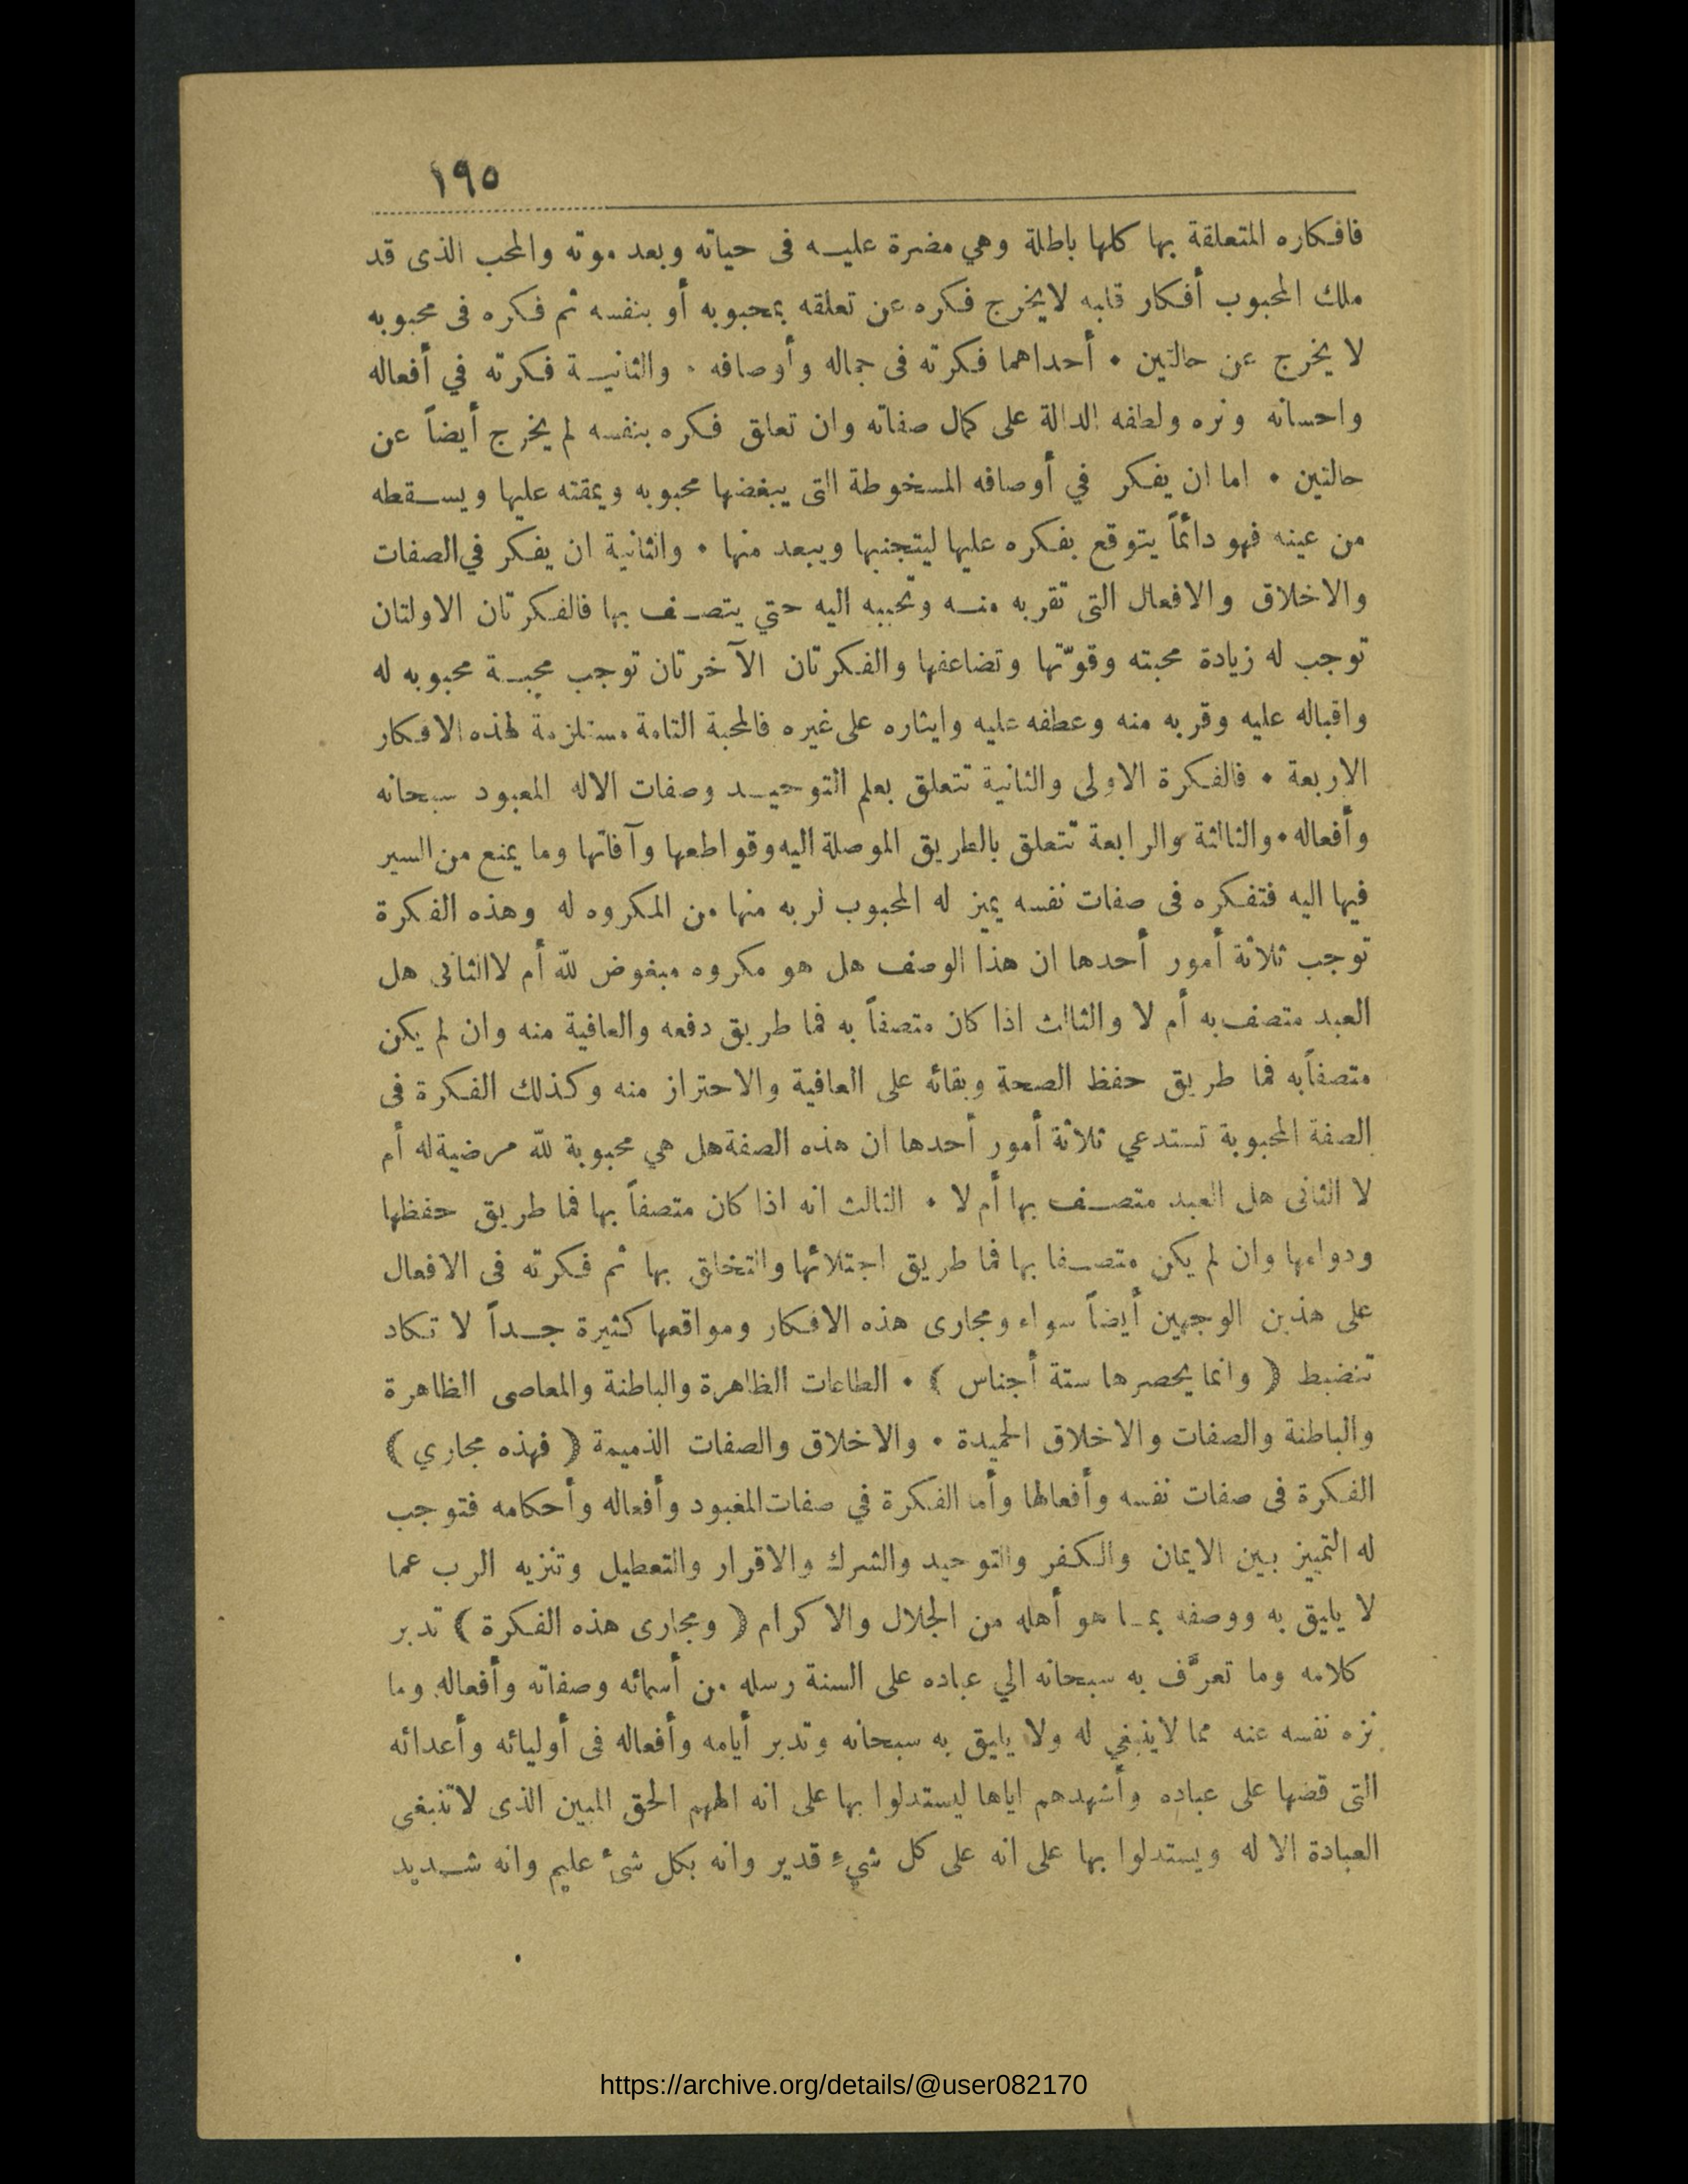 ١٩٥
فافكاره المتعلقة بها كلها باطلة وهي مضرة عليه فى حياته وبعد موته والمحب الذى قد
ملك المحبوب أفكار قلبه لايخرج فكره عن تعلقه بمحبوبه أو بنفسه ثم فكره فى محبوبه
لا يخرج عن حالتين • أحداهما فكرته فى جماله وأوصافه • والثانية فكرته في أفعاله
واحسانه وبره ولطفه الدالة على كمال صفاته وان تعلق فكره بنفسه لم يخرج أيضاً عن
حالتين • اما ان يفكر في أوصافه المسخوطة التى يبغضها محبوبه ويمقته عليها ويسقطه
من عينه فهو دائماً يتوقع بفكره عليها ليتجنبها ويبعد منها • والثانية ان يفكر في الصفات
والاخلاق والافعال التى تقربه منه وتحببه اليه حتي يتصف بها فالفكرتان الاولتان
توجب له زيادة محبته وقوّتها وتضاعفها والفكرتان الآخرتان توجب محبة محبوبه له
واقباله عليه وقربه منه وعطفه عليه وايثاره على غيره فالمحبة التامة مستلزمة لهذه الافكار
الاربعة • فالفكرة الاولى والثانية تتعلق بعلم التوحيد وصفات الاله المعبود سبحانه
وأفعاله • والثالثة والرابعة تتعلق بالطريق الموصلة اليه وقواطعها وآفاتها وما يمنع من السير
فيها اليه فتفكره فى صفات نفسه يميز له المحبوب لربه منها من المكروه له وهذه الفكرة
توجب ثلاثة أمور أحدها ان هذا الوصف هل هو مكروه مبغوض لله أم لا الثانى هل
العبد متصف به أم لا والثالث اذا كان متصفاً به فما طريق دفعه والعافية منه وان لم يكن
متصفاً به فما طريق حفظ الصحة وبقائه على العافية والاحتراز منه وكذلك الفكرة فى
الصفة المحبوبة تستدعي ثلاثة أمور أحدها ان هذه الصفة هل هي محبوبة لله مرضية له أم
لا الثانى هل العبد متصف بها أم لا • الثالث انه اذا كان متصفاً بها فما طريق حفظها
ودوامها وان لم يكن متصفا بها فما طريق اجتلائها والتخلق بها ثم فكرته فى الافعال
على هذين الوجهين أيضاً سواء ومجارى هذه الافكار ومواقعها كثيرة جداً لا تكاد
تنضبط ﴿ وانما يحصرها ستة أجناس ﴾ • الطاعات الظاهرة والباطنة والمعاصى الظاهرة
والباطنة والصفات والاخلاق الحميدة • والاخلاق والصفات الذميمة ﴿ فهذه مجاري ﴾
الفكرة فى صفات نفسه وأفعالها وأما الفكرة في صفات المغبود وأفعاله وأحكامه فتوجب
له التمييز بين الايمان والكفر والتوحيد والشرك والاقرار والتعطيل وتنزيه الرب عما
لا يليق به ووصفه بما هو أهله من الجلال والاكرام ﴿ ومجارى هذه الفكرة ﴾ تدبر
كلامه وما تعرَّف به سبحانه الي عباده على السنة رسله من أسمائه وصفاته وأفعاله وما
نزه نفسه عنه مما لاينبغي له ولا يليق به سبحانه وتدبر أيامه وأفعاله فى أوليائه وأعدائه
التى قضها على عباده وأشهدهم اياها ليستدلوا بها على انه الههم الحق المبين الذى لاتنبغى
العبادة الا له ويستدلوا بها على انه على كل شيء قدير وانه بكل شئ عليم وانه شديد
https://archive.org/details/@user082170